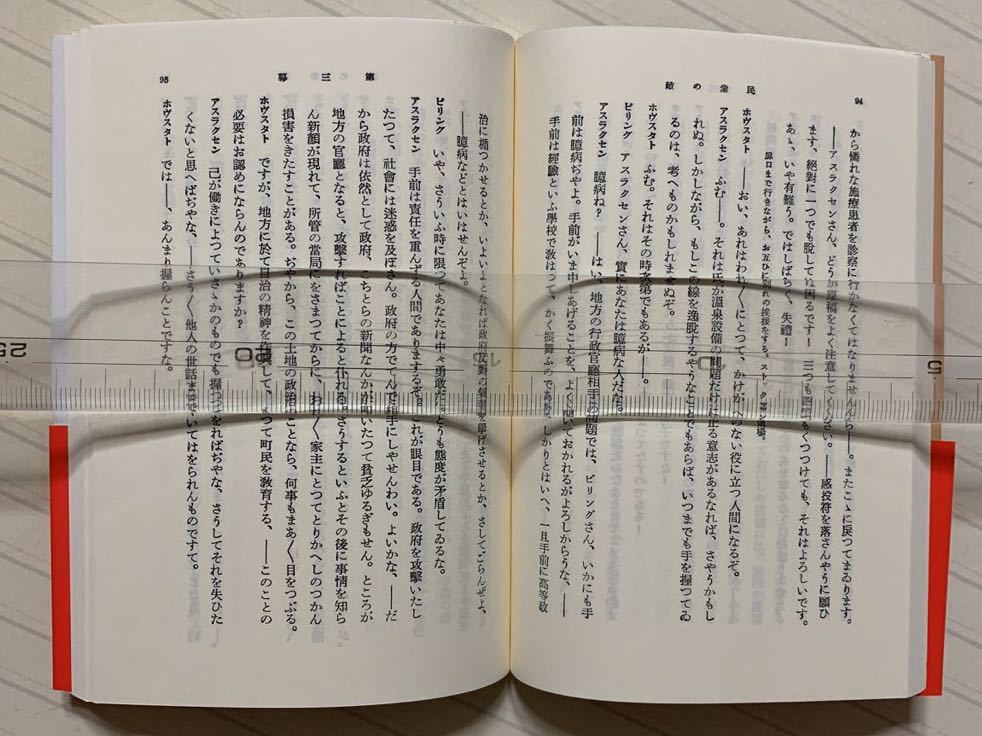 94
民衆の敵
から憐れな施療患者を診察に行かなくてはなりませんから――。またこゝに戻つてまゐります。
――アスラクセンさん、どうか原稿をよく注意してください。――感投符を落さんやうに願ひ
ます、絶對に一つでも脱しては困るです！　三つも四つもくつつけても、それはよろしいです。
あゝ、いや有難う。ではしばらく、失禮！
扉口まで行きながら、お互ひに別れの挨拶をする。ストックマン退場。
ホヴスタト　――おい、あれはわれ〳〵にとつて、かけがへのない役に立つ人間になるぞ。
アスラクセン　ふむ――。それは氏が溫泉設備の問題だけに止る意志があるなれば、さやうかもし
れぬ。しかしながら、もしこの線を逸脱するやうなことでもあらば、いつまでも手を握つてゐ
るのは、考へものかもしれませぬぞ。
ホヴスタト　ふむ。それはその時次第でもあるが――。
ビリング　アスラクセンさん、實にあなたは臆病な人だな。
アスラクセン　臆病ね？　――はい、地方の行政官廳相手の問題では、ビリングさん、いかにも手
前は臆病ぢやよ。手前がいま申しあげることを、よく聞いておかれるがよろしからうな、――
手前は經驗といふ學校で敎はつて、かく振舞ふのである。しかりとはいへ、一旦手前に高等政
第三幕
95
治に楯つかせるとか、いよいよとなれば政府反對の氣勢を擧げさせるとか、さしてごらんぜよ、
――臆病などとはいはせんぞよ。
ビリング　いや、さういふ時に限つてあなたは中々勇敢だ。どうも態度が矛盾してゐるな。
アスラクセン　手前は責任を重んずる人間でありまするぞ。これが眼目である。政府を攻擊いたし
たつて、社會には迷惑を及ぼさん。政府の方でてんで相手にしやせんわい。よいかな、――だ
から政府は依然として政府、こちとらの新聞なんかが叩いたつて貧乏ゆるぎもせん。ところが
地方の官廳となると、攻擊すればことによると仆れる。さうするといふとその後に事情を知ら
ん新顏が現れて、所管の當局にをさまつてからに、われ〳〵家主にとつてとりかへしのつかん
損害をきたすことがある。ぢやから、この土地の政治のことなら、何事もまあ〳〵目をつぶる。
ホヴスタト　ですが、地方に於て自治の精神を作興して、もつて町民を敎育する、――このことの
必要はお認めにならんのでありますか？
アスラクセン　己が働きによつていさゝかのものでも握つてをればぢやな、さうしてそれを失ひた
くないと思へばぢやな、――さう〳〵他人の世話までやいてはをられんものですて。
ホヴスタト　では――、あんまり握らんことですな。
25
20
15
10
5